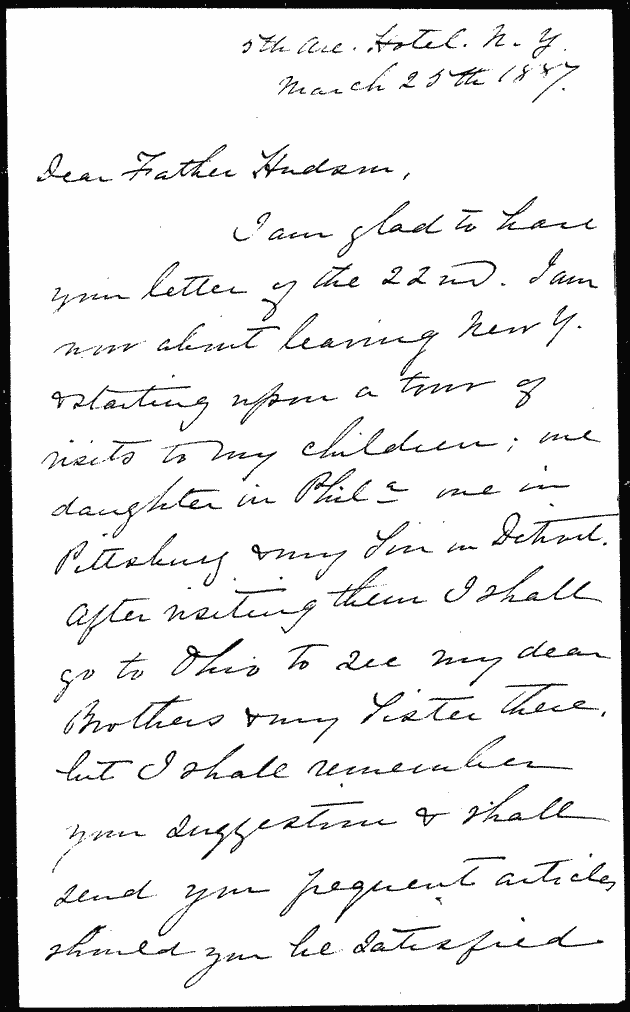 5th Ave. Hotel. N. Y.
March 25th 1887.
Dear Father Hudson,
I am glad to have
your letter of the 22nd. I am
now about leaving New Y.
& starting upon a tour of
visits to my children; one
daughter in Phila one in
Pittsburg & my Son in Detroit.
After visiting them I shall
go to Ohio to see my dear
Brothers & my Sister there,
but I shall remember
your suggestion & shall
send you frequent articles
should you be satisfied